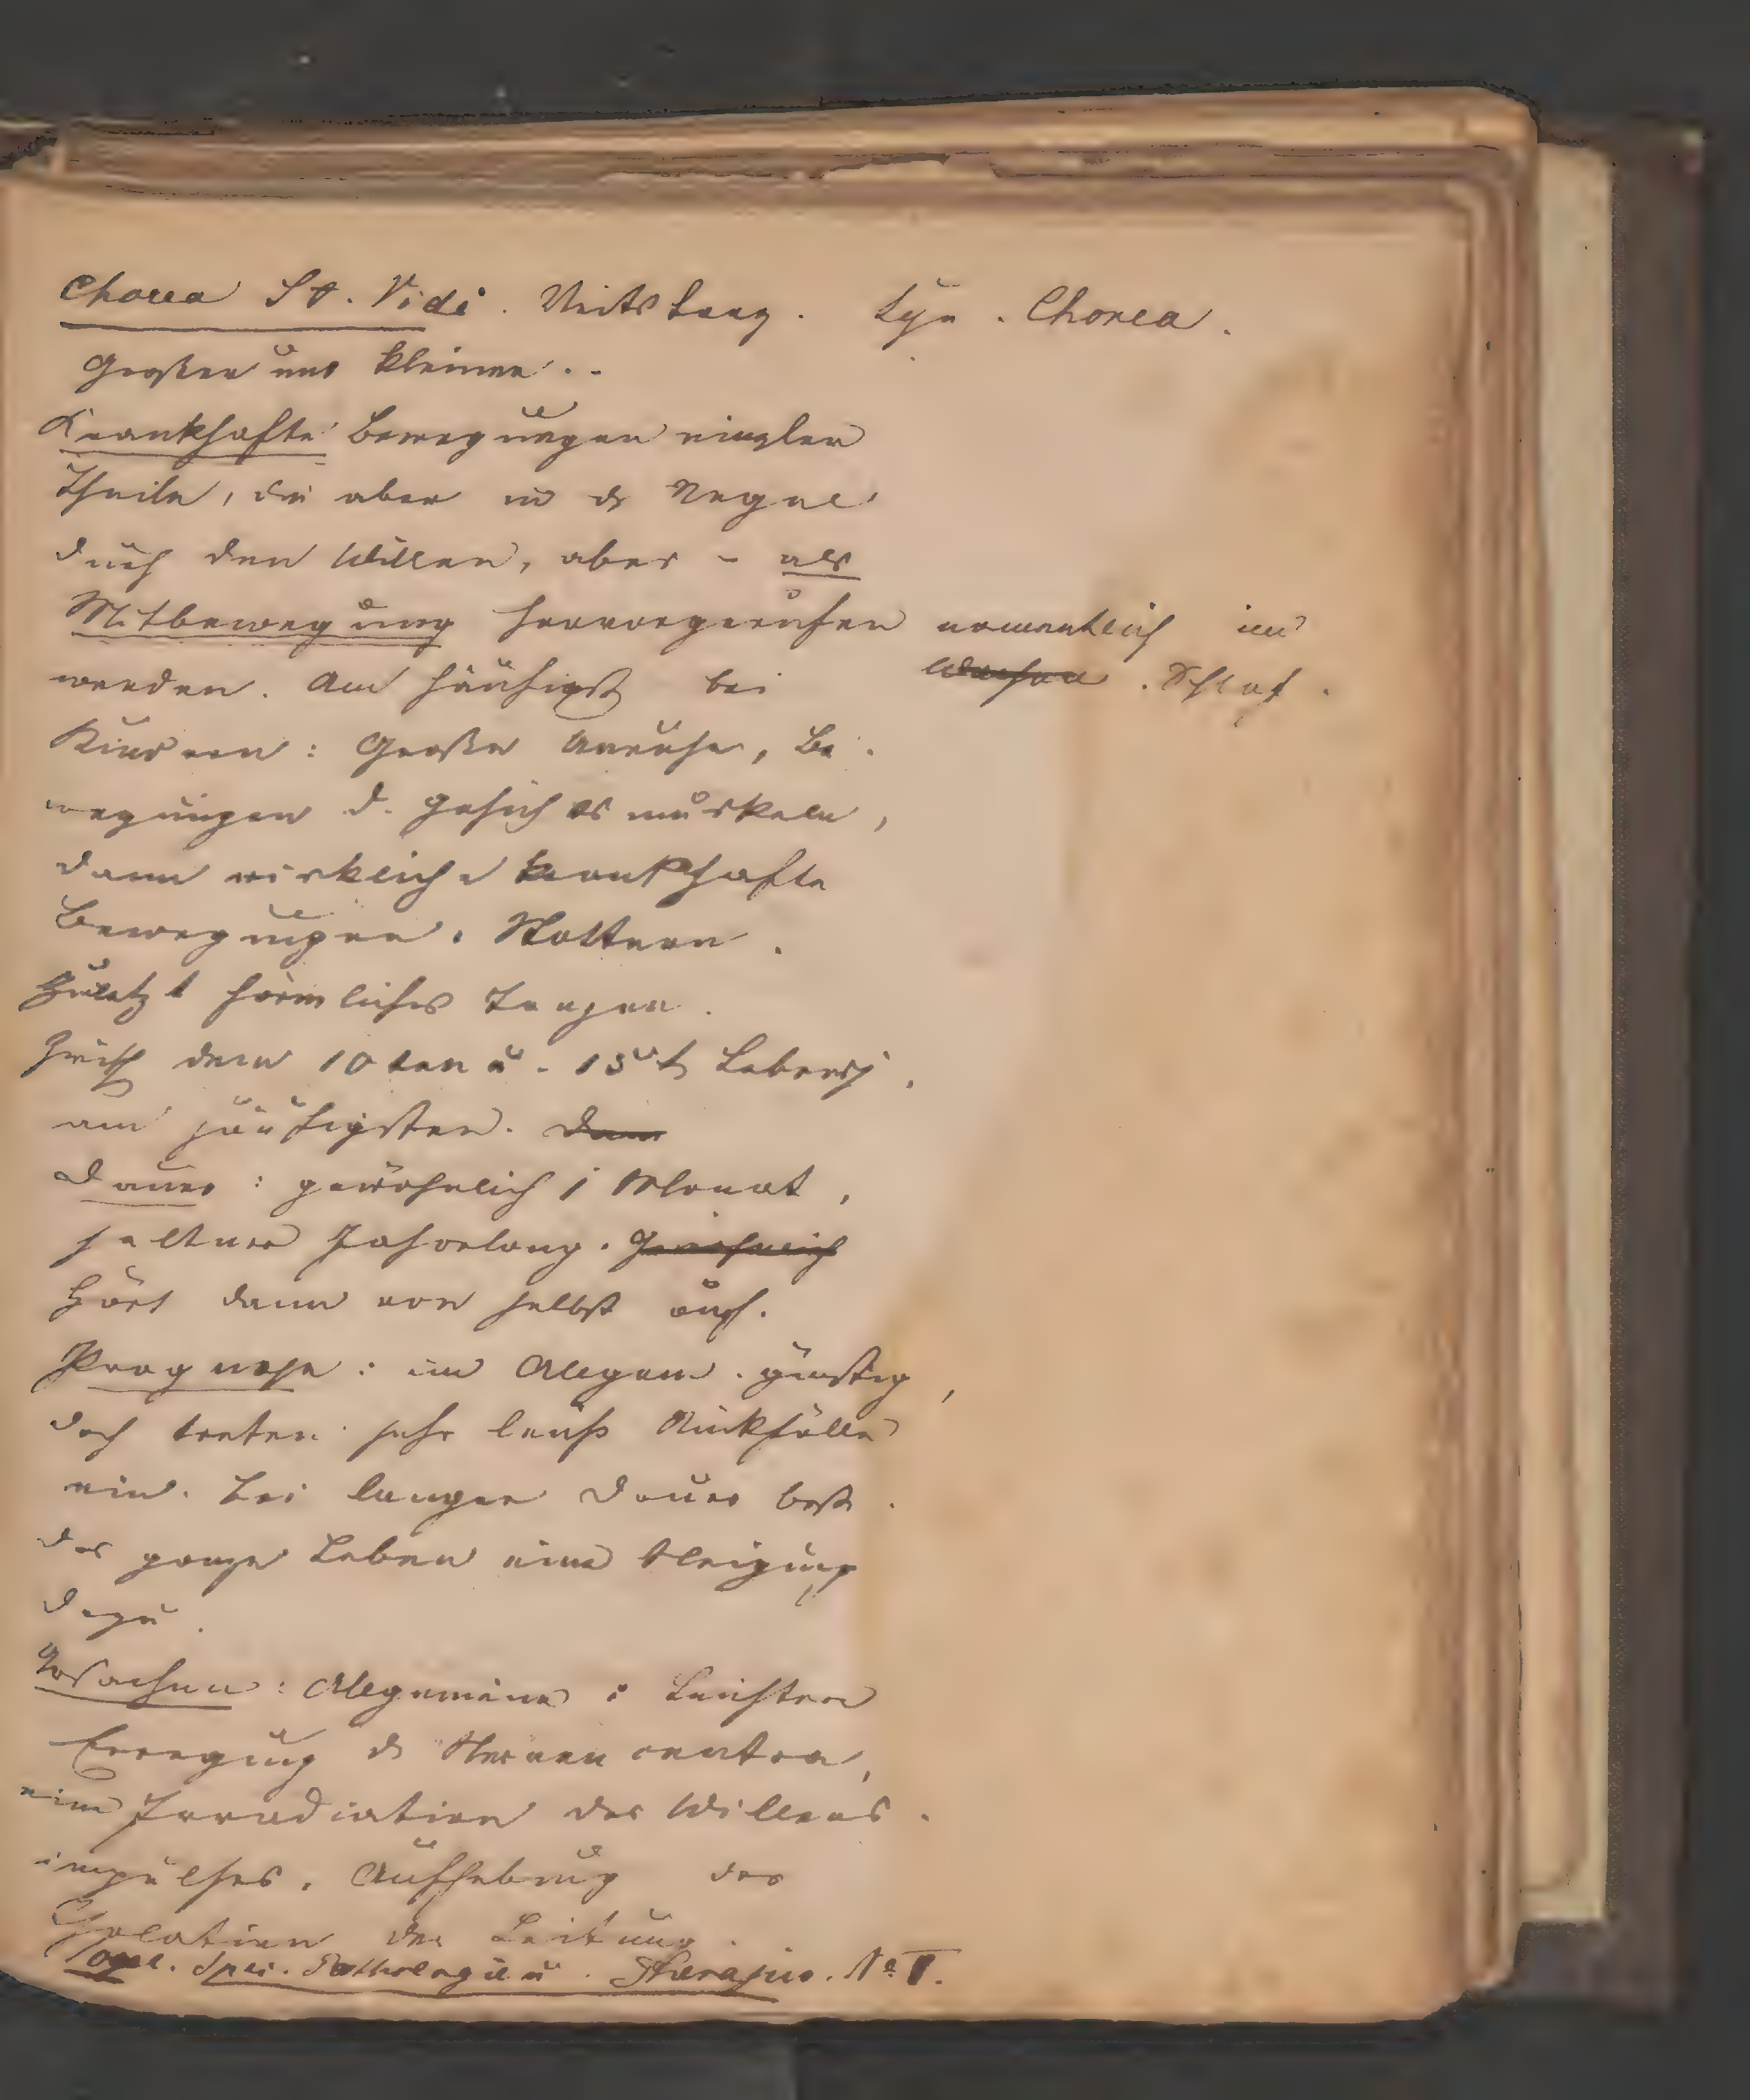 Chorea St. Vidi. Veitstanz. Syn. Chorea.
Großer und kleiner..
Krankhafte Bewegungen einzler
Theile, die aber in d Regel
durch den Willen, aber - als
Mitbewegung hervorgerufen namentlich im
werden. Am häufigst bei Wachen. Schlaf.
Kindern: Große Unruhe, Be-
wegungen d. Gesichtsmuskeln,
dann wirkliche krankhafte
Bewegungen. Stottern.
Zuletzt förmliches Tanzen.
Zwisch dem 10ten u. 15t Lebensj.
am häufigsten. Dau
Dauer: gewöhnlich 1 Monat,
seltner Jahrelang. Gewöhnlich
Hört dann von selbst auf.
Prognose: im Allgem. günstig,
doch treten sehr leicht Rückfälle
ein. Bei langer Dauer best.
das ganze Leben eine Neigung
dazu.
Ursachen: Allgemeine: Leichtere
Erregung d Nervencentra,
eine Irradiation des Willens-
impulses. Aufhebung der
Isolation der Leitung.
Vogel. Spec. Pathologie u. Therapie. No I.